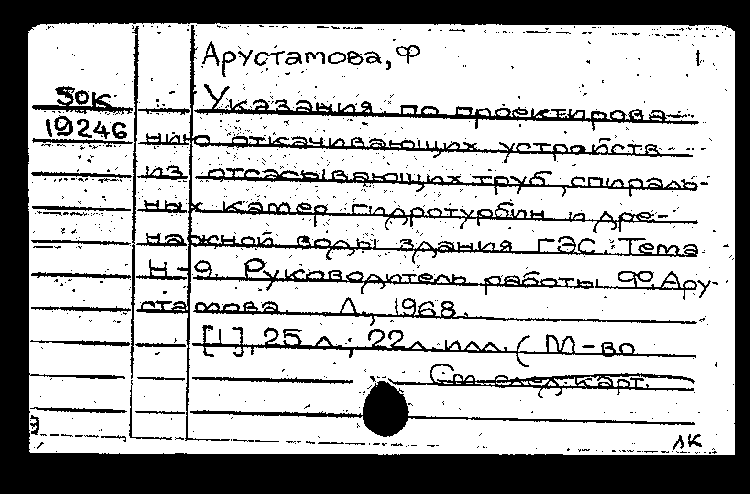 Арустамова, Ф 1
50к Указания по проектирова-
19246 нию откачивающих устройств
из отсасывающих труб, спираль-
ных камер гидротурбин и дре-
нажной воды здания ГЭС. Тема
Н-9. Руководитель работы Ф. Ару-
стамова. Л., 1968.
[1], 25 л.; 22 л. илл. (М-во
См. след. карт.
лк